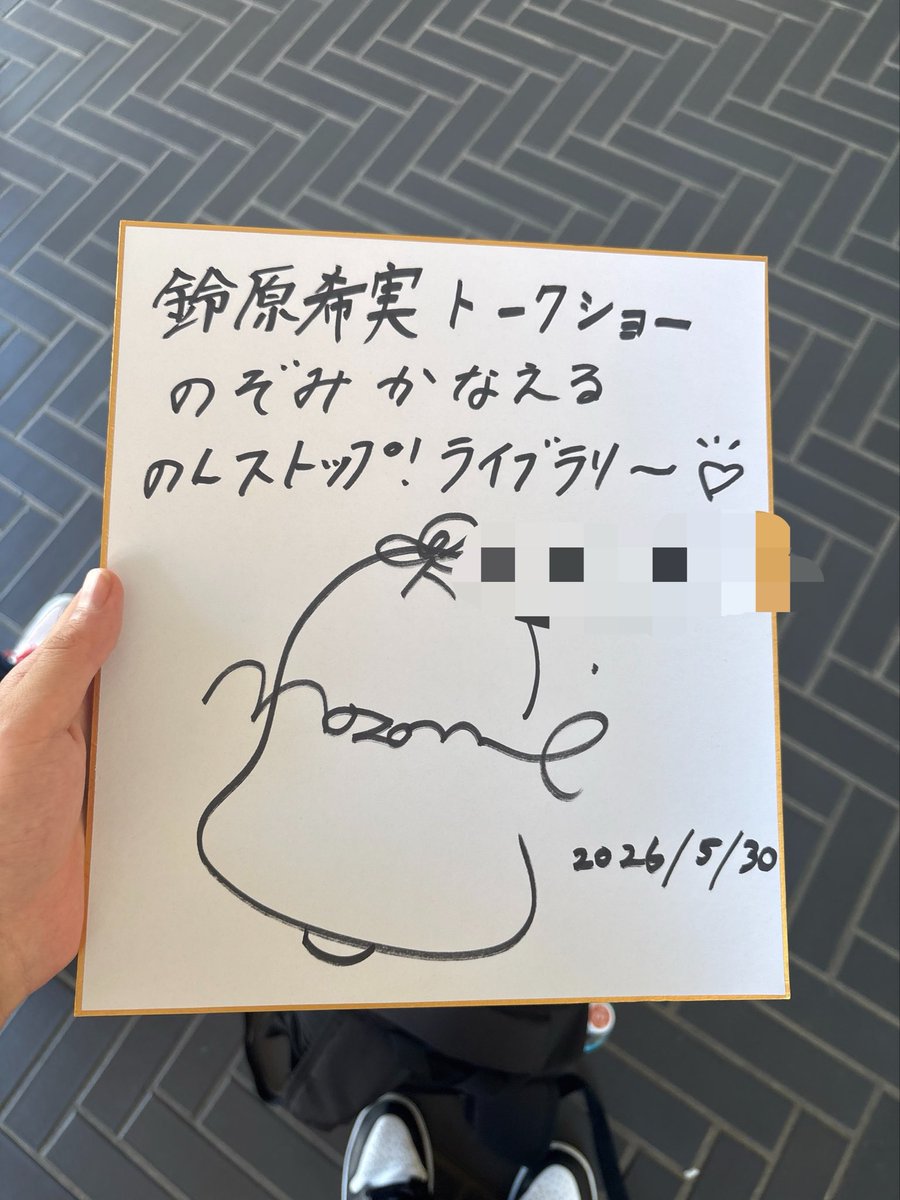 鈴原希実トークショー
のぞみかなえる
のんストップ!ライブラリ〜♡
Nozomi
2026/5/30